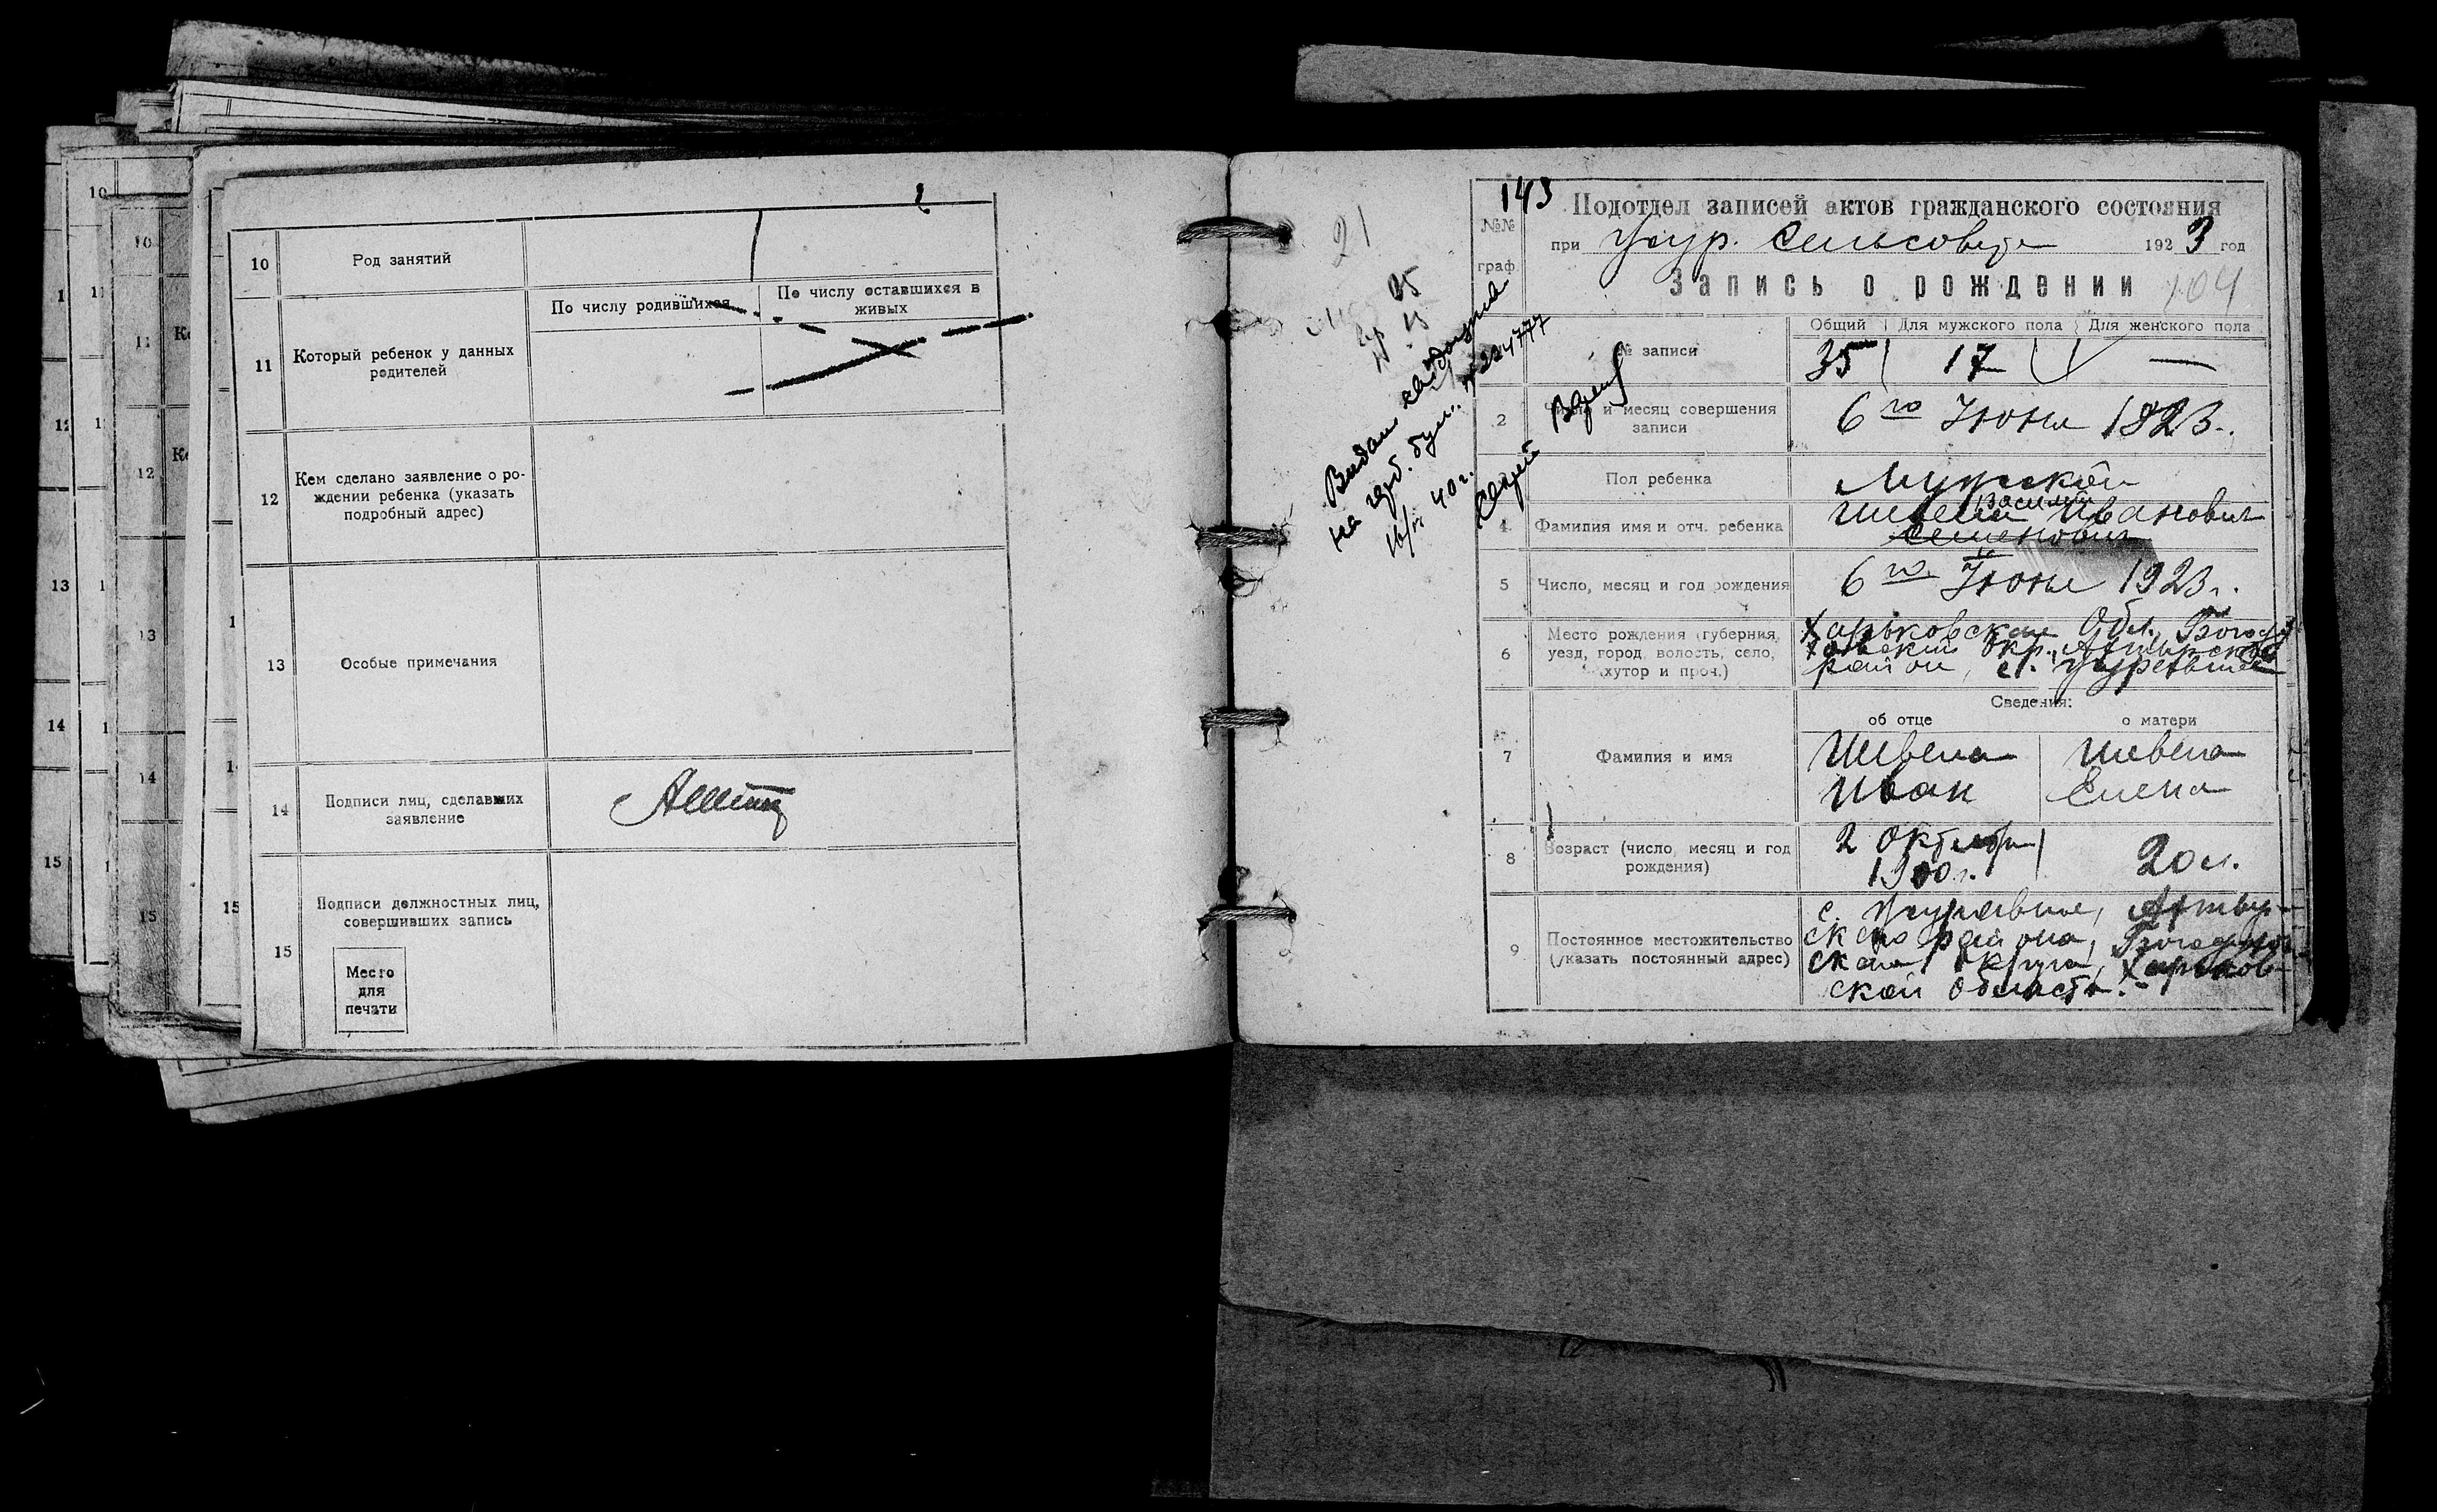 10 Род занятий
По числу родившихся По числу оставшихся в
живых
11 Который ребенок у данных
родителей
12 Кем сделано заявление о ро-
ждении ребенка (указать
подробный адрес)
13 Особые примечания
14 Подписи лиц, сделавших
заявление
15 Подписи должностных лиц,
совершивших запись
Место
для
печати
10
11
12
13
14
15
143
№№
граф.
Подотдел записей актов гражданского состояния
при Жур. сельсовете 1923 год
Запись о рождении 104
21
Общий Для мужского пола Для женского пола
№ записи 35 17 —
2 Число и месяц совершения
записи
6го Июня 1923.
Пол ребенка Мужской
Василий
4 Фамилия имя и отч. ребенка Иванович
Семенович
5 Число, месяц и год рождения 6го Июня 1923 г.
6 Место рождения (губерния,
уезд, город, волость, село,
хутор и проч.)
Харьковская Обл., Богоду
ховский Окр., Ахтырский
район, с. Журавное
Сведения:
об отце о матери
7 Фамилия и имя
Шевела Шевела
Иван Елена
8 Возраст (число, месяц и год
рождения)
2 октября
1900 г. 20 л.
9 Постоянное местожительство
(указать постоянный адрес)
с. Журавное, Ахтыр-
ского района, Богодухов-
ского округа, Харьков-
ской области.
Выдано свидетельство
на герб. бум. № 224777
40 г.